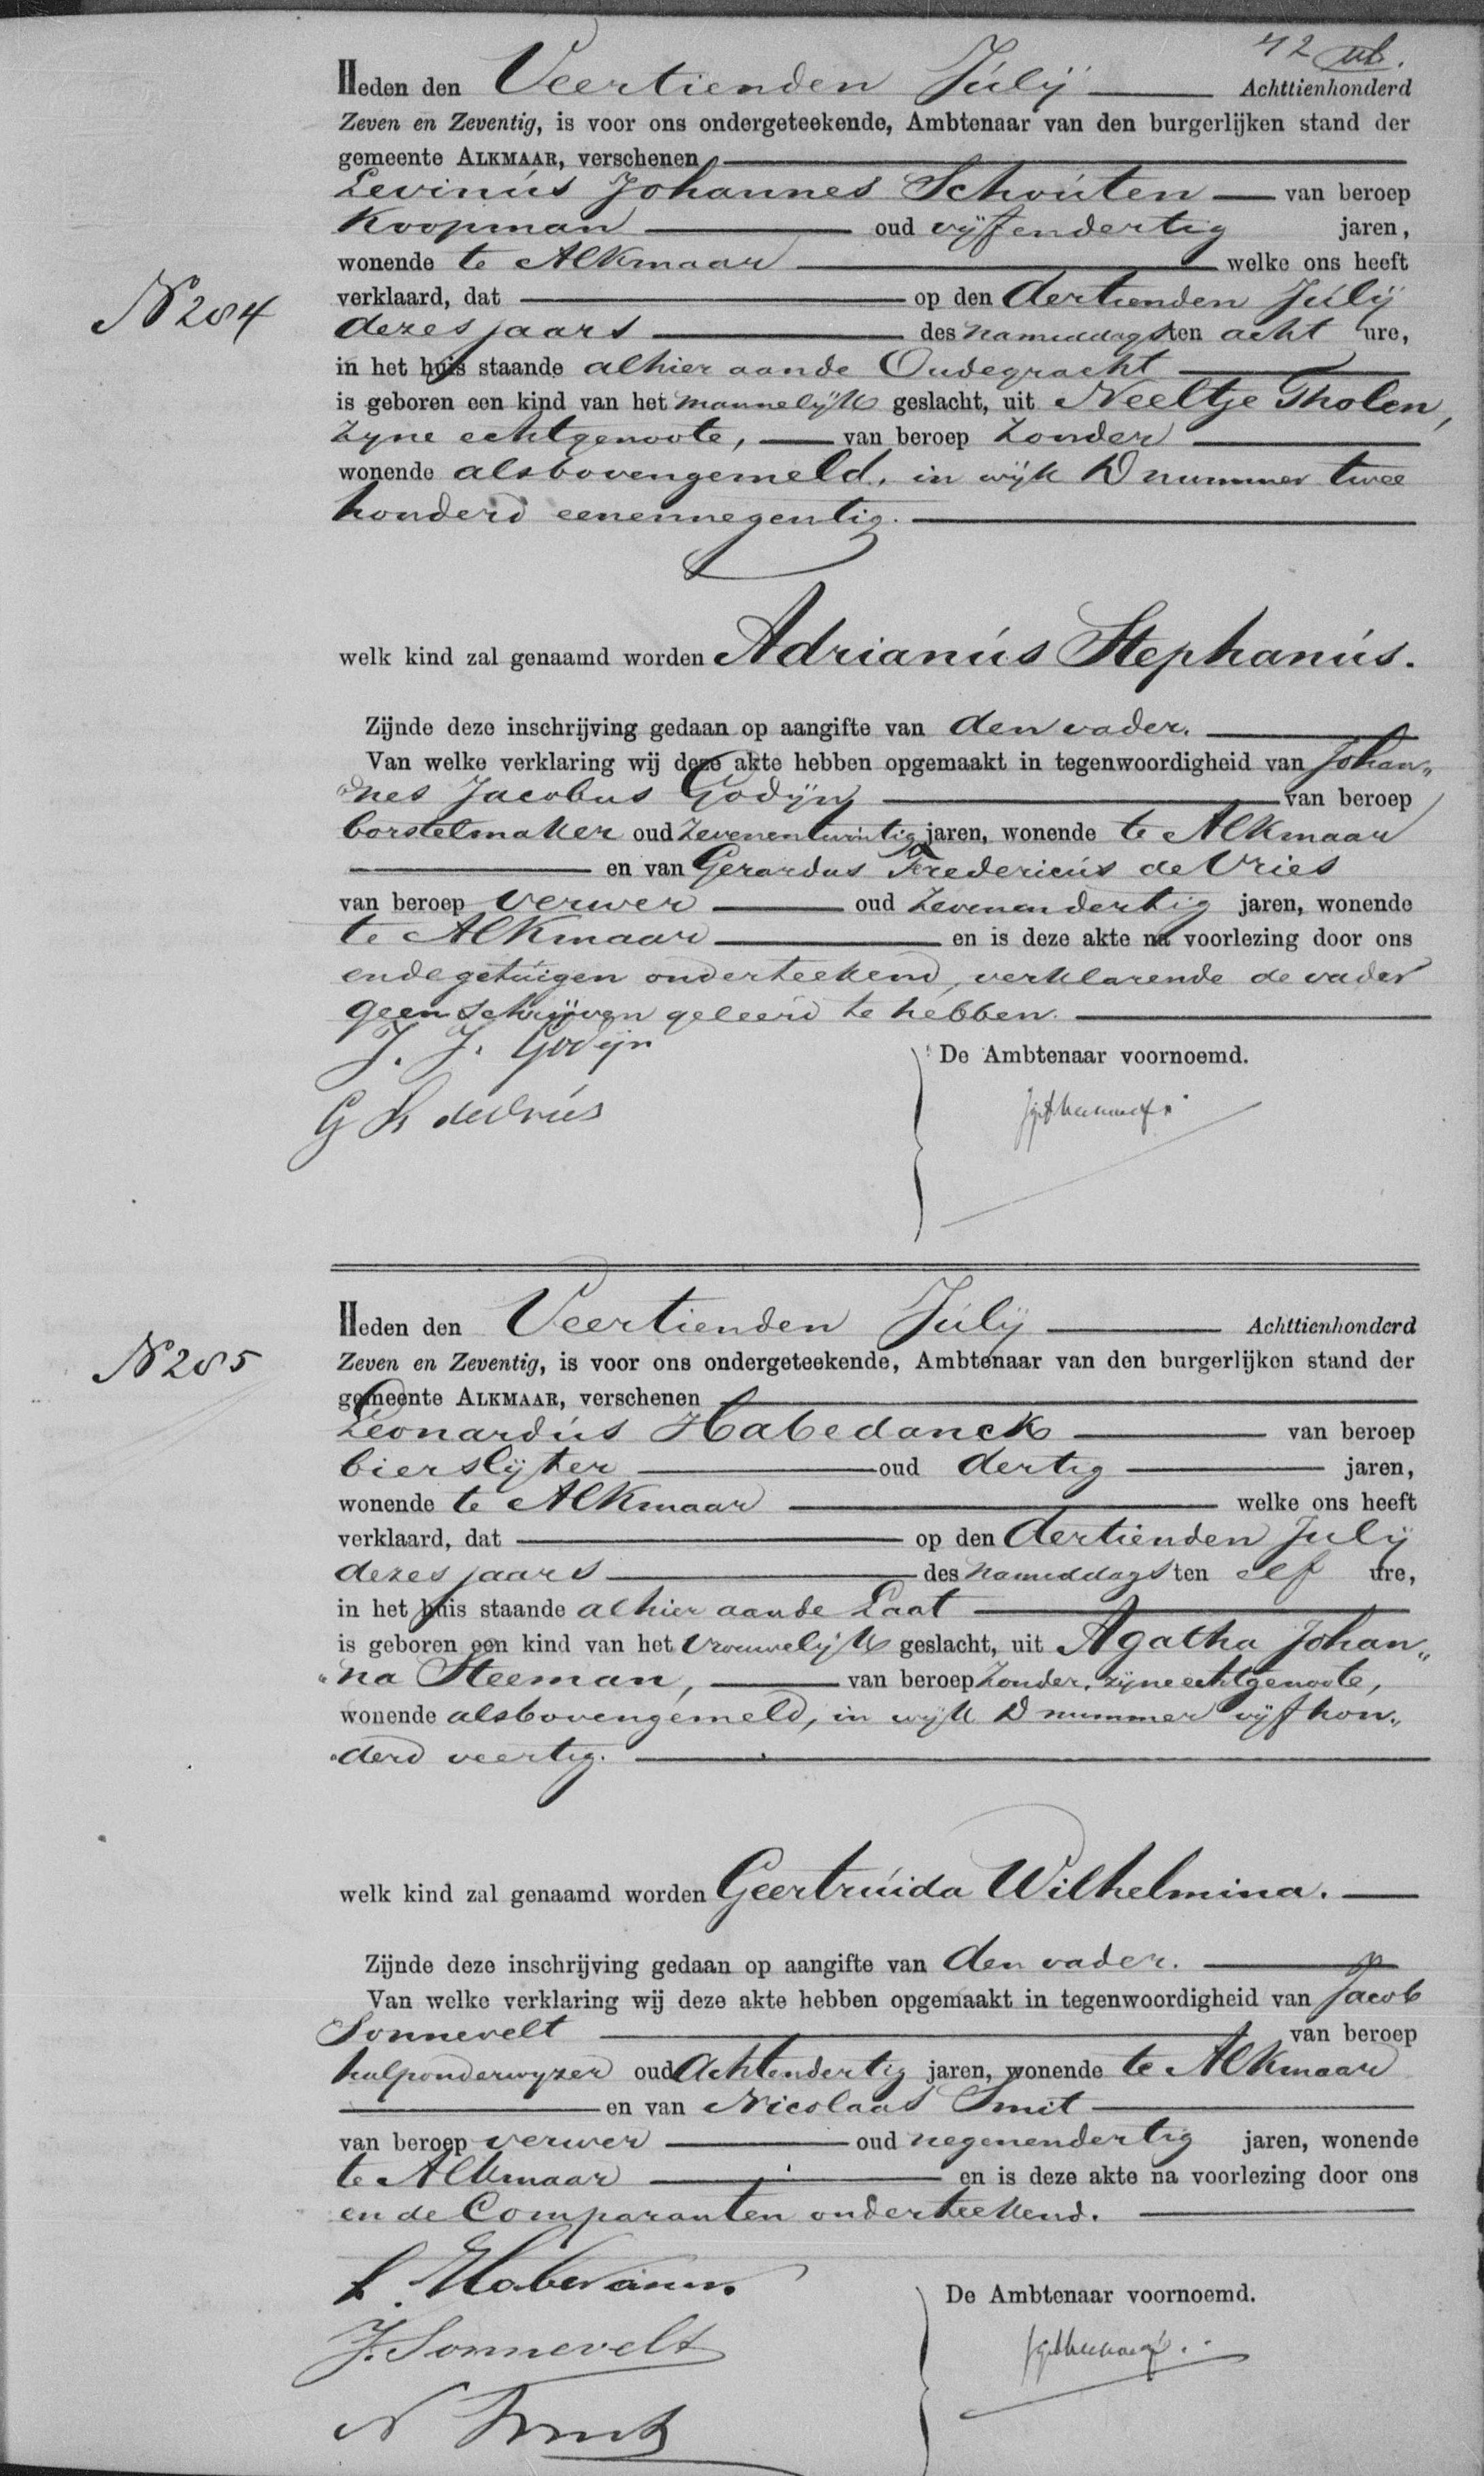 42
Heden den Veertienden Júlij Achttienhonderd
Zeven en Zeventig, is voor ons ondergeteekende, Ambtenaar van den burgerlijken stand der
gemeente ALKMAAR, verschenen
Levinús Johannes Schoúten van beroep
Koopman oud vijfendertig jaren,
wonende te Alkmaar welke ons heeft
N 284
verklaard, dat op den dertienden Júlij
dezes jaars des nameddags ten acht ure,
in het huis staande alhier aande Oudegracht
is geboren een kind van het mannelijk geslacht, uit Neeltje Tholen,
zyne echtgenoote, van beroep zonder
wonende alsbovengemeld, in wijk D nummer twee
honderd eenennegentig.
welk kind zal genaamd worden Adrianús Stephanús.
Zijnde deze inschrijving gedaan op aangifte van den vader.
Van welke verklaring wij deze akte hebben opgemaakt in tegenwoordigheid van Johan„
„nes Jacobus Godijn van beroep
borstelmaker oud zevenentwintig jaren, wonende te Alkmaar
en van Gerardus Fredericús de Vries
van beroep verwer oud zevenendertig jaren, wonende
te Alkmaar en is deze akte na voorlezing door ons
ende getúigen onderteekend, verklarende de vader
geen schrijven geleerd te hebben.
J. J. Godijn
De Ambtenaar voornoemd.
G F de Vries
N 285
Heden den Veertienden Júlij Achttienhonderd
Zeven en Zeventig, is voor ons ondergeteekende, Ambtenaar van den burgerlijken stand der
gemeente ALKMAAR, verschenen
Leonardús Habedanck van beroep
bierslijter oud dertig jaren,
wonende te Alkmaar welke ons heeft
verklaard, dat op den dertienden July
dezes jaars des nameddags ten elf ure,
in het huis staande alhier aande Laat
is geboren een kind van het vrouwelijk geslacht, uit Agatha Johan„
„na Steeman, van beroep zonder, zyne echtgenoote,
wonende alsbovengemeld, in wijk D nummer vijfhon„
„derd veertig.
welk kind zal genaamd worden Geertrúida Wilhelmina.
Zijnde deze inschrijving gedaan op aangifte van den vader.
Van welke verklaring wij deze akte hebben opgemaakt in tegenwoordigheid van Jacob
Sonnevelt van beroep
hulponderwyzer oud Achtendertig jaren, wonende te Alkmaar
en van Nicolaas Smit
van beroep verwer oud negenendertig jaren, wonende
te Alkmaar en is deze akte na voorlezing door ons
en de Comparanten onderteekend.
L. Habedanck
De Ambtenaar voornoemd.
J. Sonnevelt
N Smit